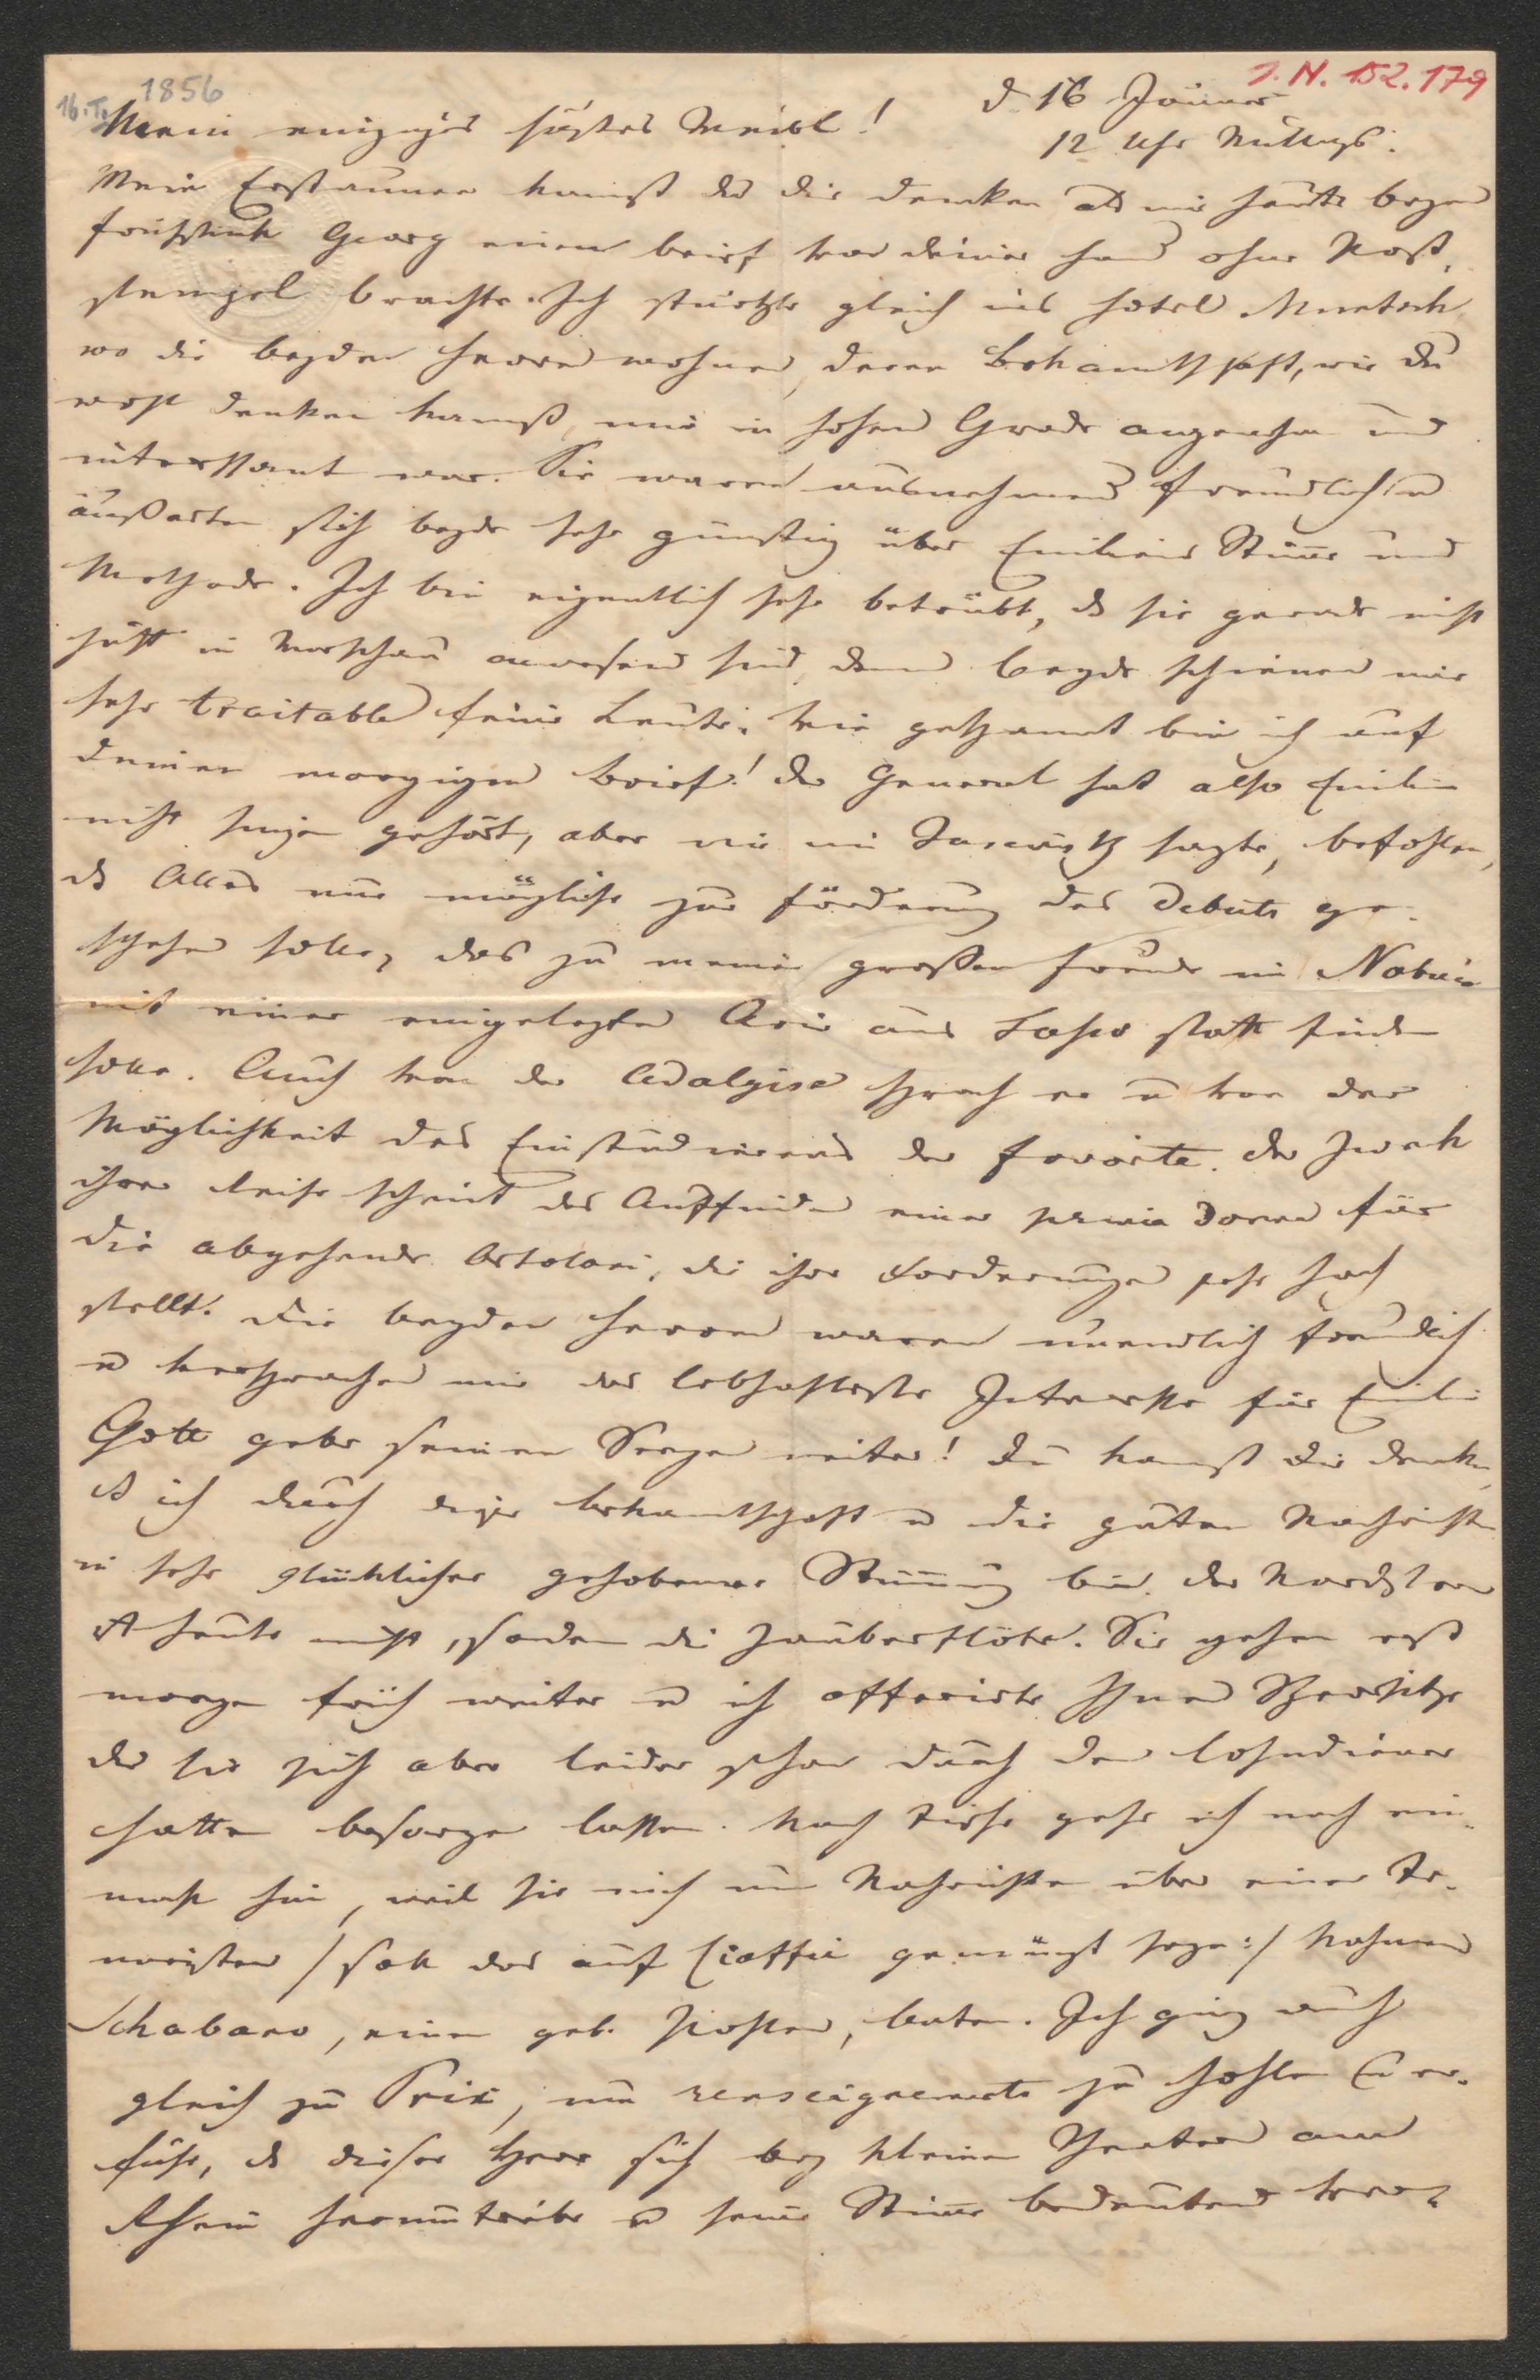 J. N. 152.179
1856
16. I.
d 16 Jänner
Mein einziges süßes Weibl!
12 Uhr Mittags.
Mein Erstaunen kanst du dir denken als mir heute beym
frühstück Georg einen brief von deiner hand ohne Post,
stempel brachte. Ich stürtzte gleich ins hotel Munsch
wo die beyden herren wohnen, deren Bekanntschaft, wie du
wohl denken kanst, mir in hohem Grade angenehm und
interessant war. Sie waren ausnehmend freundlich u
äußerten sich beyde sehr günstig über Emiliens Stime und
Methode. Ich bin eigentlich sehr betrübt, ds sie gerade nicht
jetzt in Warschau anwesend sind, denn beyde schienen mir
sehr traitable feine Leute. Wie gespannt bin ich auf
deinen morgigen brief! der General hat also Emilie
nicht singen gehört, aber wie mir sagte, befohlen,
ds Alles nur mögliche zur förderung des Debuts ge-
schehen solle, das zu meiner großen freude in Nabuco
mit einer eingelegten Arie aus Tasso statt finden
solle. Auch von der Adalgisa sprach er u von der
Möglichkeit des Einstudierens der favorite. der Zweck
ihrer Reise scheint das Auffinden einer prima Donna für
die abgehende Ortolani, die ihre Forderungen sehr hoch
stellt. Die beyden herren waren unendlich freundlich
u versprachen mir das lebhafteste Interesse für Emilie
Gott gebe seinen Segen weiter! Du kanst dir denken,
ds ich durch diese bekanntschaft u die guten Nachrichten
in sehr glücklicher gehobener Stimung bin. der Nordstern
ist heute nicht, sondern die Zauberflöte. Sie gehen erst
morgen früh weiter u ich offerirte Ihnen Sperrsitze
die sie sich aber leider schon durch den lohndiener
hatten besorgen lassen. Nach tische gehe ich noch ein-
mahl hin, weil sie mich um Nachrichten über einen Te-
noristen /: soll das auf Ciaffei gemünzt seyn :/ Nahmens
Schabano, einen geb. Pohlen, baten. Ich ging auch
gleich zu Prix, um renseignements zu hohlen u er-
fuhr, ds dieser Herr sich bey kleinen Theatern am
Rhein herumtreibe u seine Stime bedeutend ver-